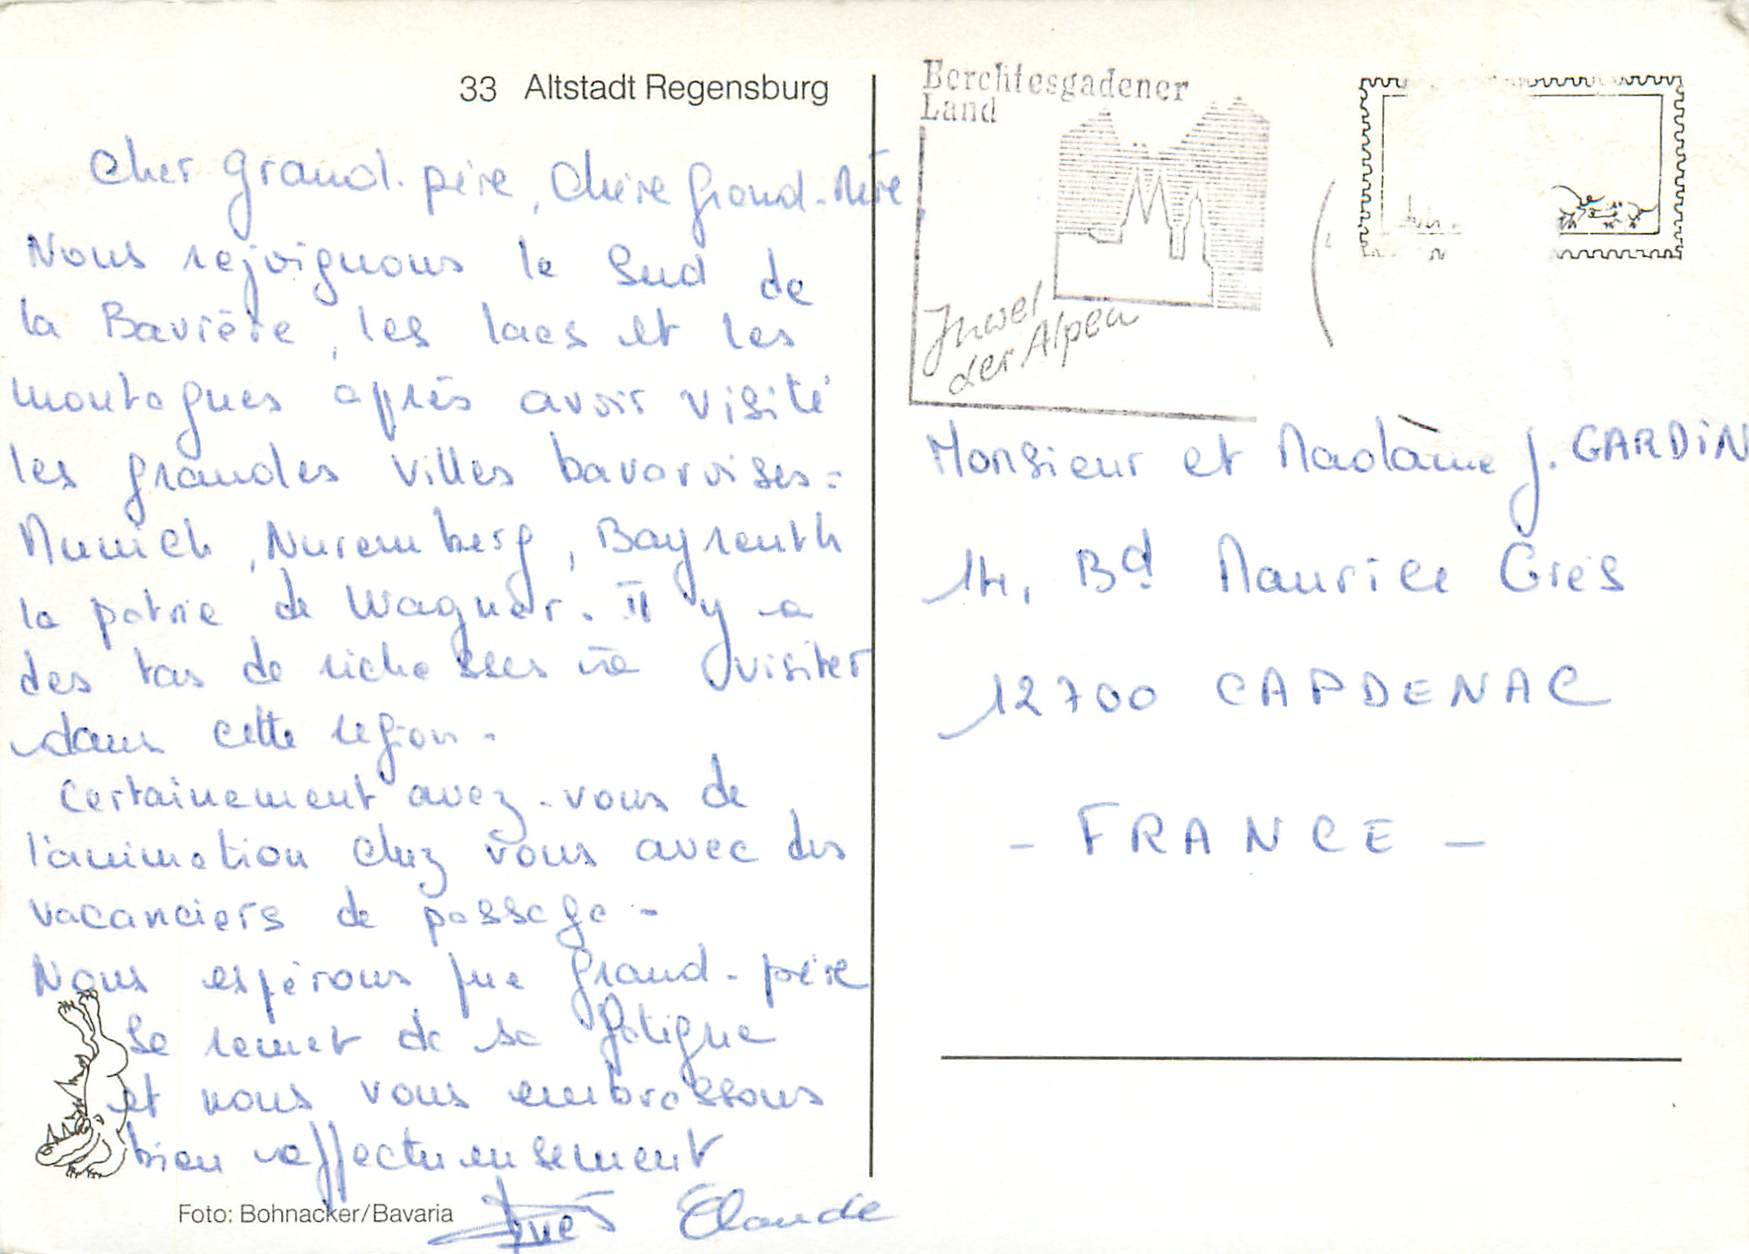 33 Altstadt Regensburg
Cher grand-père, Chère Grand-Mère,
Nous rejoignons le Sud de
la Bavière, les lacs et les
montagnes après avoir visité
les grandes villes bavaroises :
Munich, Nuremberg, Bayreuth
la patrie de Wagner. Il y a
des tas de richesses à visiter
dans cette région.
Certainement avez-vous de
l'animation chez vous avec des
vacanciers de passage -
Nous espérons que Grand-père
se remet de sa fatigue
et nous vous embrassons
bien affectueusement
Claude
Foto: Bohnacker/Bavaria
Berchtesgadener
Land
Juwel
der Alpen
Monsieur et Madame J. GARDIN
14, Bd Maurice Grès
12700 CAPDENAC
- FRANCE -